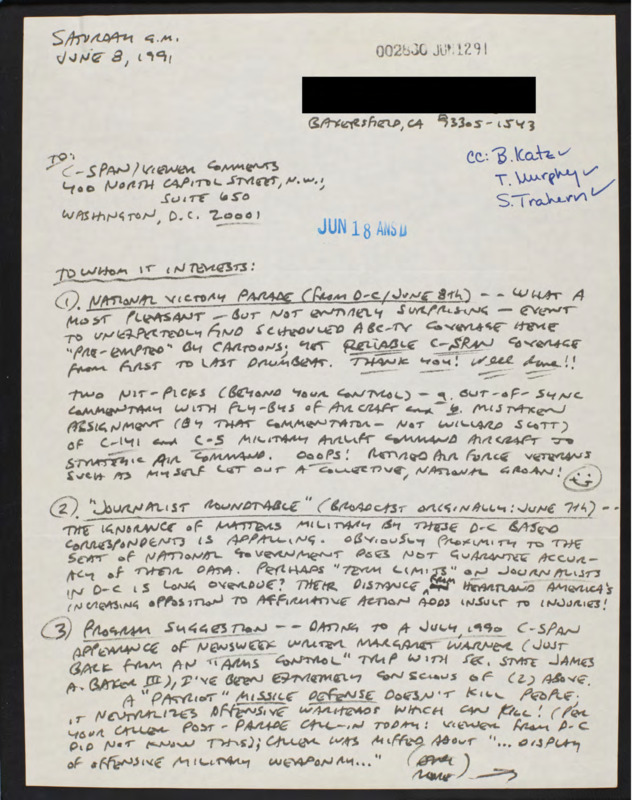 SATURDAY A.M.
JUNE 8, 1991
002830 JUN1291
BAKERSFIELD, CA 93305-1543
TO:
C-SPAN/VIEWER COMMENTS
400 NORTH CAPITOL STREET, N.W.,
SUITE 650
WASHINGTON, D.C. 20001
cc: B. Katz
T. Murphy
S. Trahern
JUN 18 ANS'D
TO WHOM IT INTERESTS:
1. NATIONAL VICTORY PARADE (FROM D-C/JUNE 8TH) -- WHAT A
MOST PLEASANT - BUT NOT ENTIRELY SURPRISING - EVENT
TO UNEXPECTEDLY FIND SCHEDULED ABC-TV COVERAGE HERE
"PRE-EMPTED" BY CARTOONS; YET RELIABLE C-SPAN COVERAGE
FROM FIRST TO LAST DRUMBEAT. THANK YOU! WELL DONE!!
TWO NIT-PICKS (BEYOND YOUR CONTROL) - a. OUT-OF-SYNC
COMMENTARY WITH FLY-BYS OF AIRCRAFT and b. MISTAKEN
ASSIGNMENT (BY THAT COMMENTATOR - NOT WILLARD SCOTT)
OF C-141 and C-5 MILITARY AIRLIFT COMMAND AIRCRAFT TO
STRATEGIC AIR COMMAND. OOOPS! RETIRED AIR FORCE VETERANS
SUCH AS MYSELF LET OUT A COLLECTIVE, NATIONAL GROAN!
2. "JOURNALIST ROUNDTABLE" (BROADCAST ORIGINALLY: JUNE 7TH) --
THE IGNORANCE OF MATTERS MILITARY BY THESE D-C BASED
CORRESPONDENTS IS APPALLING. OBVIOUSLY PROXIMITY TO THE
SEAT OF NATIONAL GOVERNMENT DOES NOT GUARANTEE ACCUR-
ACY OF THEIR DATA. PERHAPS "TERM LIMITS" ON JOURNALISTS
IN D-C IS LONG OVERDUE? THEIR DISTANCE FROM HEARTLAND AMERICA'S
INCREASING OPPOSITION TO AFFIRMATIVE ACTION ADDS INSULT TO INJURIES!
3. PROGRAM SUGGESTION -- DATING TO A JULY, 1990 C-SPAN
APPEARANCE OF NEWSWEEK WRITER MARGARET WARNER (JUST
BACK FROM AN "ARMS CONTROL" TRIP WITH SEC. STATE JAMES
A. BAKER III), I'VE BEEN EXTREMELY CONSCIOUS OF (2) ABOVE.
A "PATRIOT" MISSILE DEFENSE DOESN'T KILL PEOPLE;
IT NEUTRALIZES OFFENSIVE WARHEADS WHICH CAN KILL! (PER
YOUR CALLER POST-PARADE CALL-IN TODAY: VIEWER FROM D-C
DID NOT KNOW THIS); CALLER WAS MIFFED ABOUT "... DISPLAY
OF OFFENSIVE MILITARY WEAPONRY..."